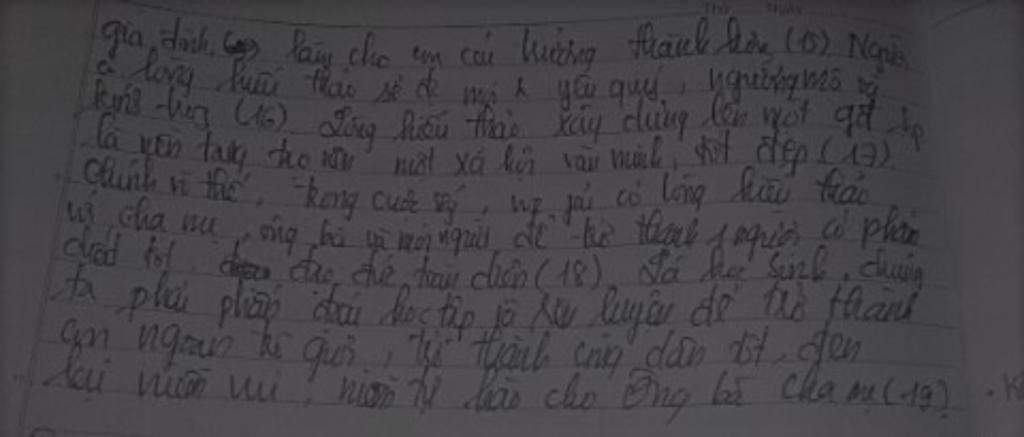 gia đình, làm cho em cái hướng thành (15) Người
có lòng hiếu thảo sẽ đc mọi yêu quý, ngưỡng mộ và
kính trọng (16) Lòng hiếu thảo xây dựng lên một gđ
là nền tảng tạo nên một xã hội văn minh, tốt đẹp (17)
chính vì thế, trong cuộc, có lòng hiếu thảo
cha mẹ, ông bà và mọi người để trở thành 1 người có phẩm
chất tốt, (18) Là học sinh, chúng
ta phải phấn đấu học tập rèn luyện để trở thành
con ngoan trò giỏi, trở thành công dân tốt, đem
lại niềm vui, niềm tự hào cho Ông bà cha mẹ (19)